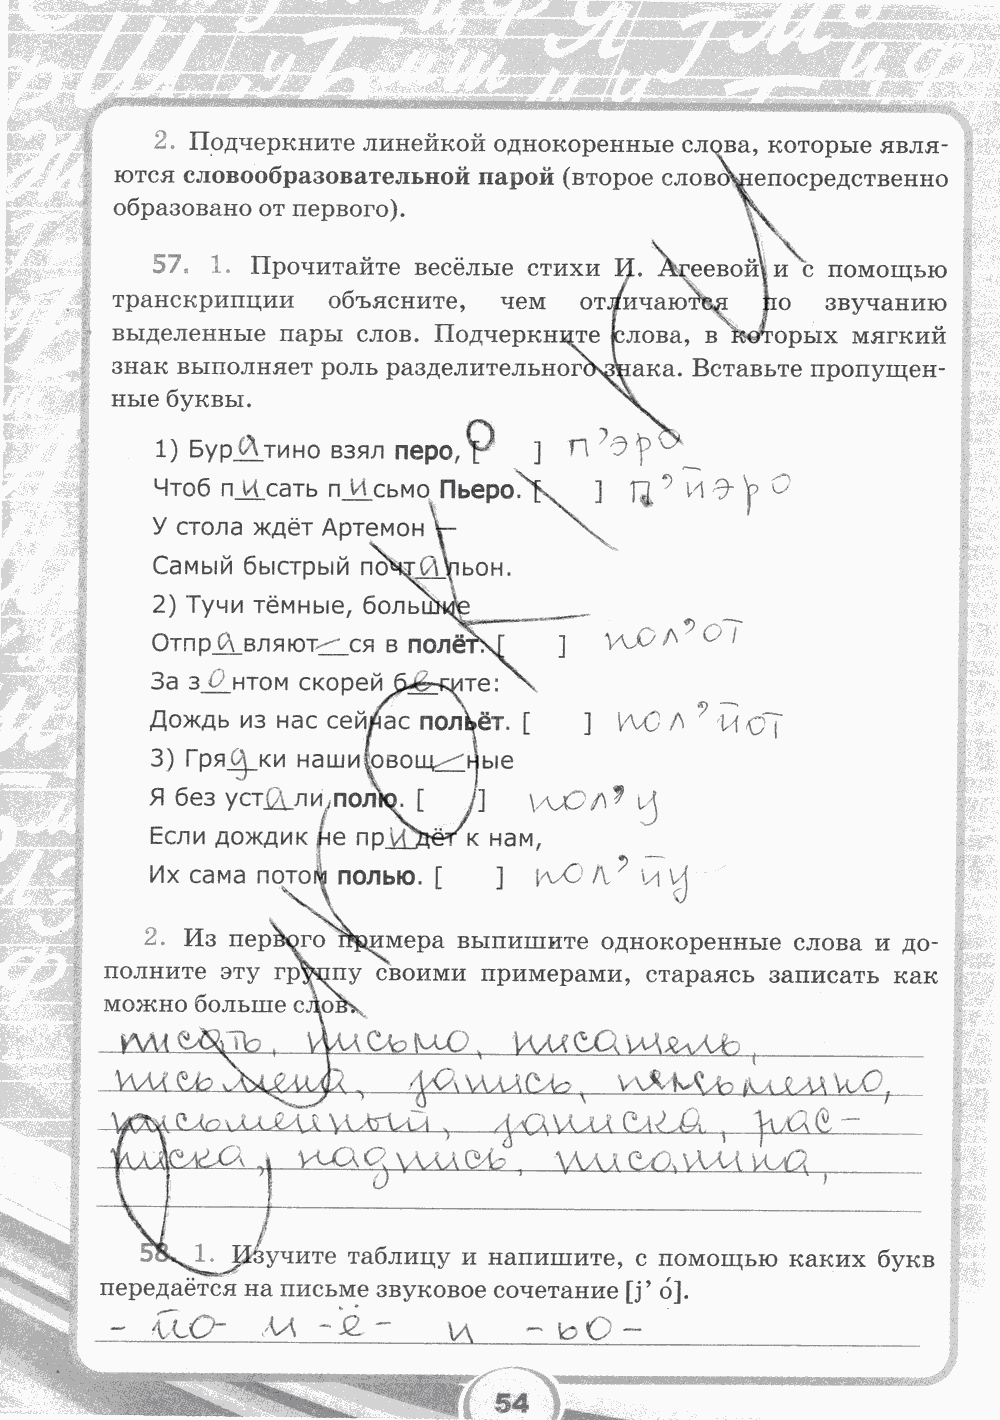 2. Подчеркните линейкой однокоренные слова, которые явля-
ются словообразовательной парой (второе слово непосредственно
образовано от первого).
57. 1. Прочитайте весёлые стихи И. Агеевой и с помощью
транскрипции объясните, чем отличаются по звучанию
выделенные пары слов. Подчеркните слова, в которых мягкий
знак выполняет роль разделительного знака. Вставьте пропущен-
ные буквы.
1) Буратино взял перо, [ ] п’эро
Чтоб писать письмо Пьеро. [ ] п’йэро
У стола ждёт Артемон —
Самый быстрый почтальон.
2) Тучи тёмные, большие
Отправляются в полёт: [ ] пол’от
За зонтом скорей бегите:
Дождь из нас сейчас польёт. [ ] пол’йот
3) Грядки наши овощные
Я без устали полю. [ ] пол’у
Если дождик не придёт к нам,
Их сама потом полью. [ ] пол’йу
2. Из первого примера выпишите однокоренные слова и до-
полните эту группу своими примерами, стараясь записать как
можно больше слов.
писать, письмо, писатель,
письмена, запись, письменно,
письменный, записка, рас-
писка, надпись, писанина,
58. 1. Изучите таблицу и напишите, с помощью каких букв
передаётся на письме звуковое сочетание [j’ о́].
- йо- и -ё- и -ьо-
54